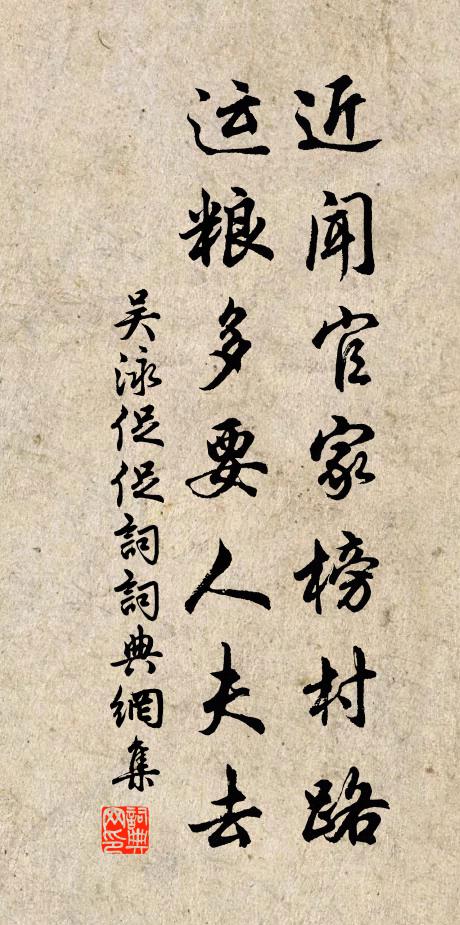 近闻官家榜村路
运粮多要人夫去
吴泳促促詞詞典網集
詞典网印